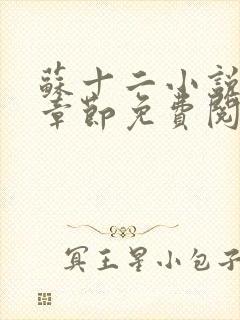 蘇十二小說
章節免費閱
冥王星小包子